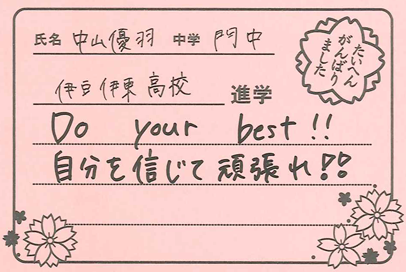 氏名 中山優羽 中学 門中
たいへん
がんばり
ました
伊豆伊東高校 進学
Do your best!!
自分を信じて頑張れ!!